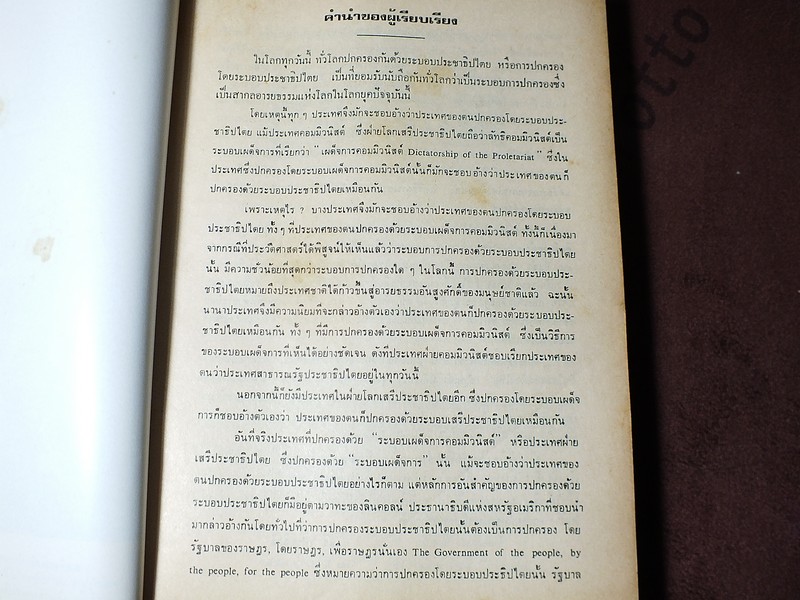 คำนำของผู้เรียบเรียง
ในโลกทุกวันนี้ ทั่วโลกปกครองกันด้วยระบอบประชาธิปไตย หรือการปกครอง
โดยระบอบประชาธิปไตย เป็นที่ยอมรับนับถือกันทั่วโลกว่าเป็นระบอบการปกครองซึ่ง
เป็นสากลอารยธรรมแห่งโลกในโลกยุคปัจจุบันนี้
โดยเหตุนี้ทุก ๆ ประเทศจึงมักจะชอบอ้างว่าประเทศของตนปกครองโดยระบอบประ-
ชาธิปไตย แม้ประเทศคอมมิวนิสต์ ซึ่งฝ่ายโลกเสรีประชาธิปไตยถือว่าลัทธิคอมมิวนิสต์เป็น
ระบอบเผด็จการที่เรียกว่า "เผด็จการคอมมิวนิสต์ Dictatorship of the Proletariat" ซึ่งใน
ประเทศซึ่งปกครองโดยระบอบเผด็จการคอมมิวนิสต์นั้นก็มักจะชอบอ้างว่าประเทศของตนก็
ปกครองด้วยระบอบประชาธิปไตยเหมือนกัน
เพราะเหตุไร ? บางประเทศจึงมักจะชอบอ้างว่าประเทศของตนปกครองโดยระบอบ
ประชาธิปไตย ทั้ง ๆ ที่ประเทศของตนปกครองด้วยระบอบเผด็จการคอมมิวนิสต์ ทั้งนี้ก็เนื่องมา
จากกรณีที่ประวัติศาสตร์ได้พิสูจน์ให้เห็นแล้วว่าระบอบการปกครองด้วยระบอบประชาธิปไตย
นั้น มีความชั่วน้อยที่สุดกว่าระบอบการปกครองใด ๆ ในโลกนี้ การปกครองด้วยระบอบประ-
ชาธิปไตยหมายถึงประเทศชาติได้ก้าวขึ้นสู่อารยธรรมอันสูงศักดิ์ของมนุษย์ชาติแล้ว ฉะนั้น
นานาประเทศจึงมีความนิยมที่จะกล่าวอ้างตัวเองว่าประเทศของตนก็ปกครองด้วยระบอบประ-
ชาธิปไตยเหมือนกัน ทั้ง ๆ ที่มีการปกครองด้วยระบอบเผด็จการคอมมิวนิสต์ ซึ่งเป็นวิธีการ
ของระบอบเผด็จการที่เห็นได้อย่างชัดเจน ดังที่ประเทศฝ่ายคอมมิวนิสต์ชอบเรียกประเทศของ
ตนว่าประเทศสาธารณรัฐประชาธิปไตยอยู่ในทุกวันนี้
นอกจากนี้ก็ยังมีประเทศในฝ่ายโลกเสรีประชาธิปไตยอีก ซึ่งปกครองโดยระบอบเผด็จ
การก็ชอบอ้างตัวเองว่า ประเทศของตนก็ปกครองด้วยระบอบเสรีประชาธิปไตยเหมือนกัน
อันที่จริงประเทศที่ปกครองด้วย "ระบอบเผด็จการคอมมิวนิสต์" หรือประเทศฝ่าย
เสรีประชาธิปไตย ซึ่งปกครองด้วย "ระบอบเผด็จการ" นั้น แม้จะชอบอ้างว่าประเทศของ
ตนปกครองด้วยระบอบประชาธิปไตยอย่างไรก็ตาม แต่หลักการอันสำคัญของการปกครองด้วย
ระบอบประชาธิปไตยก็มีอยู่ตามวาทะของลินคอลน์ ประธานาธิบดีแห่งสหรัฐอเมริกาที่ชอบนำ
มากล่าวอ้างกันโดยทั่วไปที่ว่าการปกครองระบอบประชาธิปไตยนั้นต้องเป็นการปกครอง โดย
รัฐบาลของราษฎร, โดยราษฎร, เพื่อราษฎรนั่นเอง The Government of the people, by
the people, for the people ซึ่งหมายความว่าการปกครองโดยระบอบประธิปไตยนั้น รัฐบาล
otto